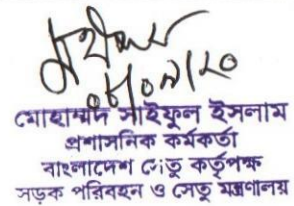 মোহাম্মদ সাইফুল ইসলাম
প্রশাসনিক কর্মকর্তা
বাংলাদেশ সেতু কর্তৃপক্ষ
সড়ক পরিবহন ও সেতু মন্ত্রণালয়